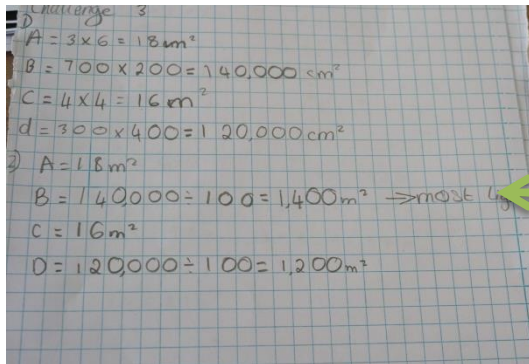 Challenge 3
1)
A = 3 x 6 = 18 m²
B = 700 x 200 = 140,000 cm²
C = 4 x 4 = 16 m²
d = 300 x 400 = 120,000 cm²
2) A = 18 m²
B = 140,000 ÷ 100 = 1,400 m² → most
C = 16 m²
D = 120,000 ÷ 100 = 1,200 m²